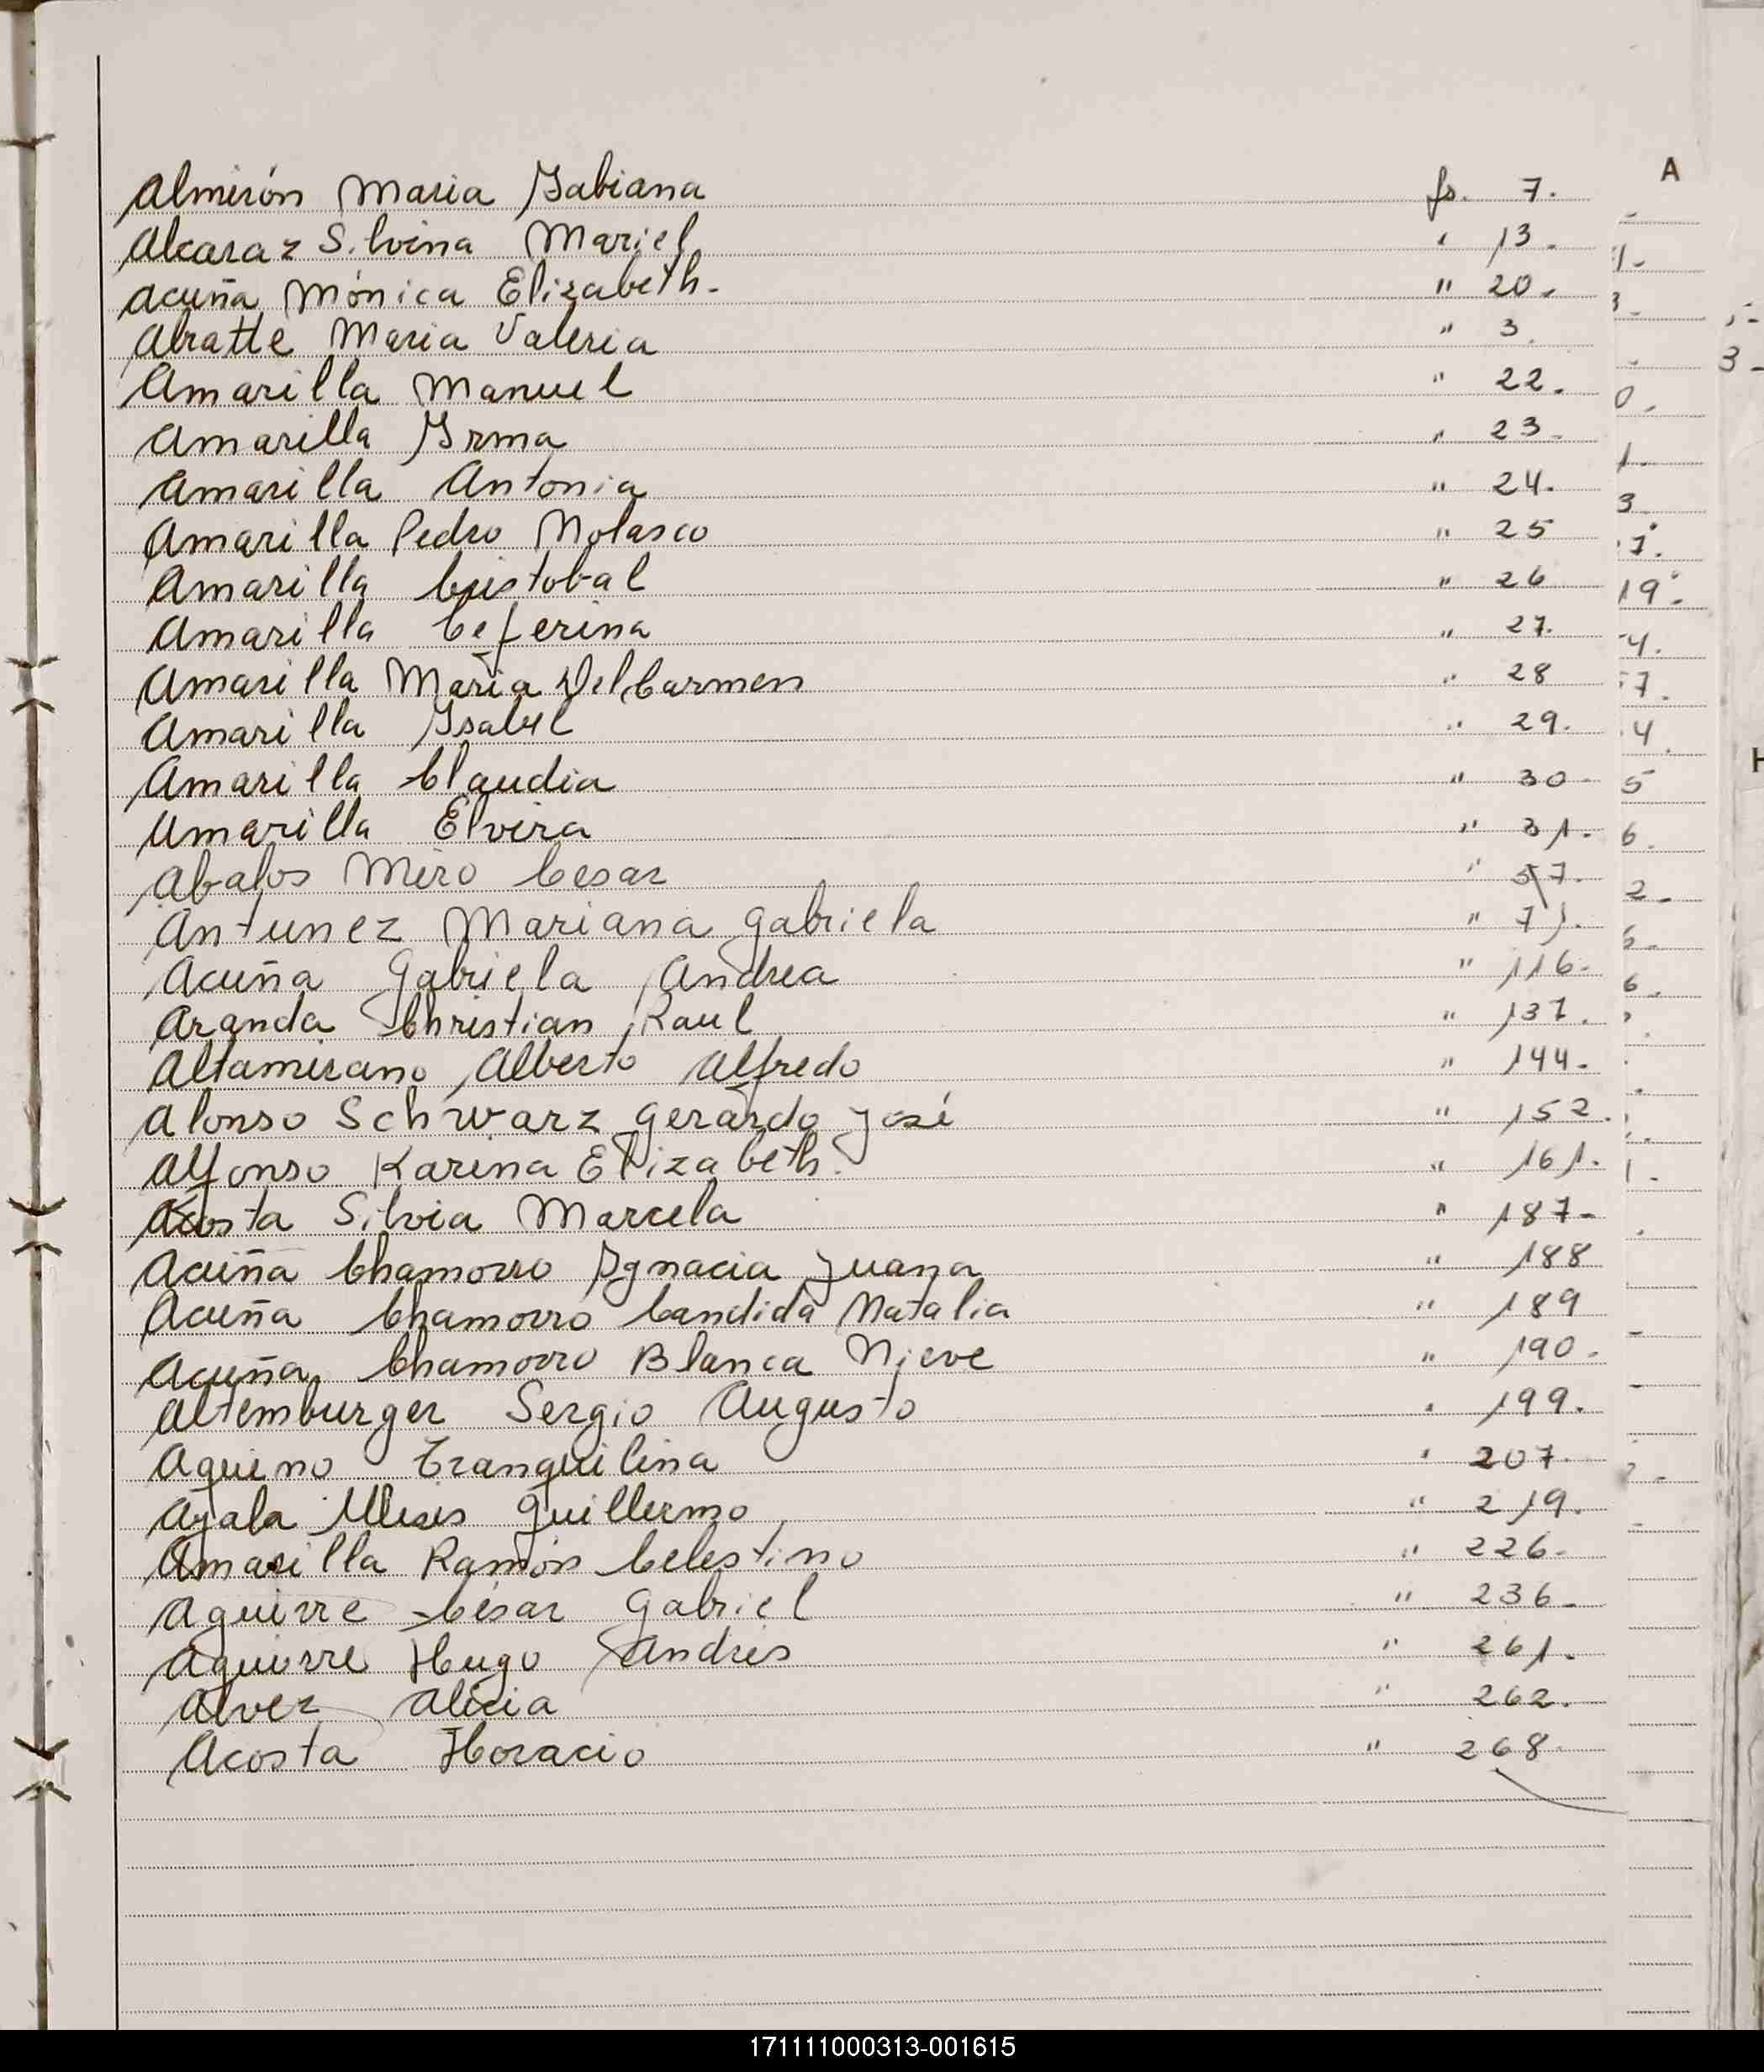 A
Almirón Maria Fabiana fs. 7.
Alcaraz Silvina Mariel " 13.
Acuña Mónica Elizabeth. " 20.
Abratte Maria Valeria " 3.
Amarilla Manuel " 22.
Amarilla Irma " 23.
Amarilla Antonia " 24.
Amarilla Pedro Nolasco " 25
Amarilla Cristobal " 26
Amarilla Ceferina " 27.
Amarilla Maria Del Carmen " 28
Amarilla Isabel " 29.
Amarilla Claudia " 30
Amarilla Elvira " 31.
Abalos Miro Cesar " 57.
Antunez Mariana Gabriela " 71.
Acuña Gabriela Andrea " 116.
Aranda Christian Raul " 137.
Altamirano Alberto Alfredo " 144.
Alonso Schwarz Gerardo José " 152.
Alfonso Karina Elizabeth. " 161.
Acosta Silvia Marcela " 187-
Acuña Chamorro Ignacia Juana " 188
Acuña Chamorro Candida Natalia " 189
Acuña Chamorro Blanca Nieve " 190.
Altemburger Sergio Augusto " 199.
Aquino Tranquilina " 207.
Ayala Ulises Guillermo " 219.
Amarilla Ramón Celestino " 226.
Aguirre César Gabriel " 236.
Aguirre Hugo Andrés " 261.
Alvez Alicia " 262.
Acosta Horacio " 268.
171111000313-001615